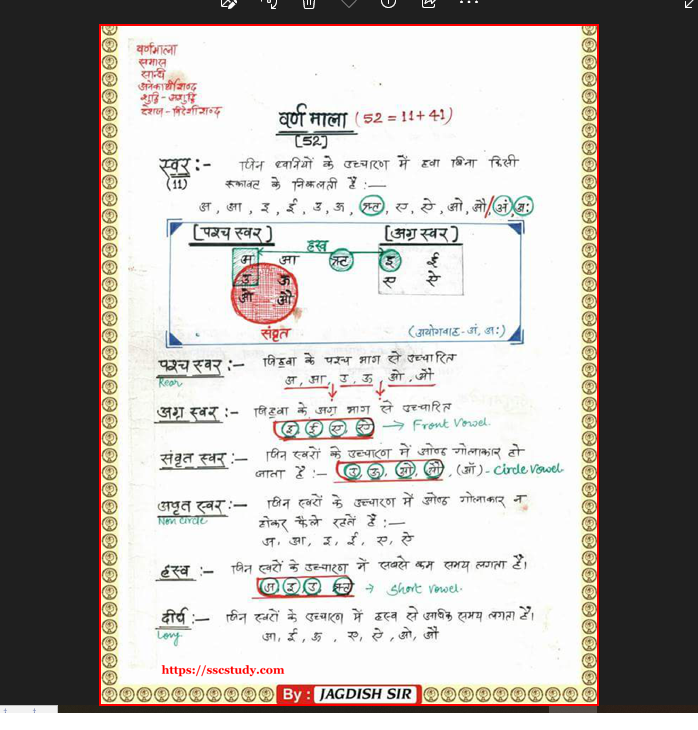 वर्णमाला
समास
सन्धि
अनेकार्थीशब्द
शुद्धि - अशुद्धि
देशज - विदेशीशब्द
वर्ण माला (52 = 11 + 41)
[52]
स्वर :- जिन ध्वनियों के उच्चारण में हवा बिना किसी
(11) रूकावट के निकलती है :—
अ, आ, इ, ई, उ, ऊ, ऋ, ए, ऐ, ओ, औ / अं, अः
[पश्च स्वर] ह्रस्व [अग्र स्वर]
अ आ ऋ इ ई
उ ऊ ए ऐ
ओ औ
संवृत (अयोगवाह - अं, अः)
पश्च स्वर :- जिहवा के पश्च भाग से उच्चारित
Rear अ, आ, उ, ऊ, ओ, औ
अग्र स्वर :- जिहवा के अग्र भाग से उच्चारित
इ ई ए ऐ → Front Vowel.
संवृत स्वर :- जिन स्वरों के उच्चारण में ओष्ठ गोलाकार हो
जाता है :- उ ऊ ओ औ, (ऑ) - Circle Vowel.
अवृत स्वर :— जिन स्वरों के उच्चारण में ओष्ठ गोलाकार न
Non Circle होकर फैले रहतें हैं :—
अ, आ, इ, ई, ए, ऐ
हस्व :- जिन स्वरों के उच्चारण में सबसे कम समय लगता है।
अ इ उ ऋ → Short Vowel.
दीर्घ :— जिन स्वरों के उच्चारण में हस्व से अधिक समय लगता है।
Long आ, ई, ऊ, ए, ऐ, ओ, औ
https://sscstudy.com
By : JAGDISH SIR